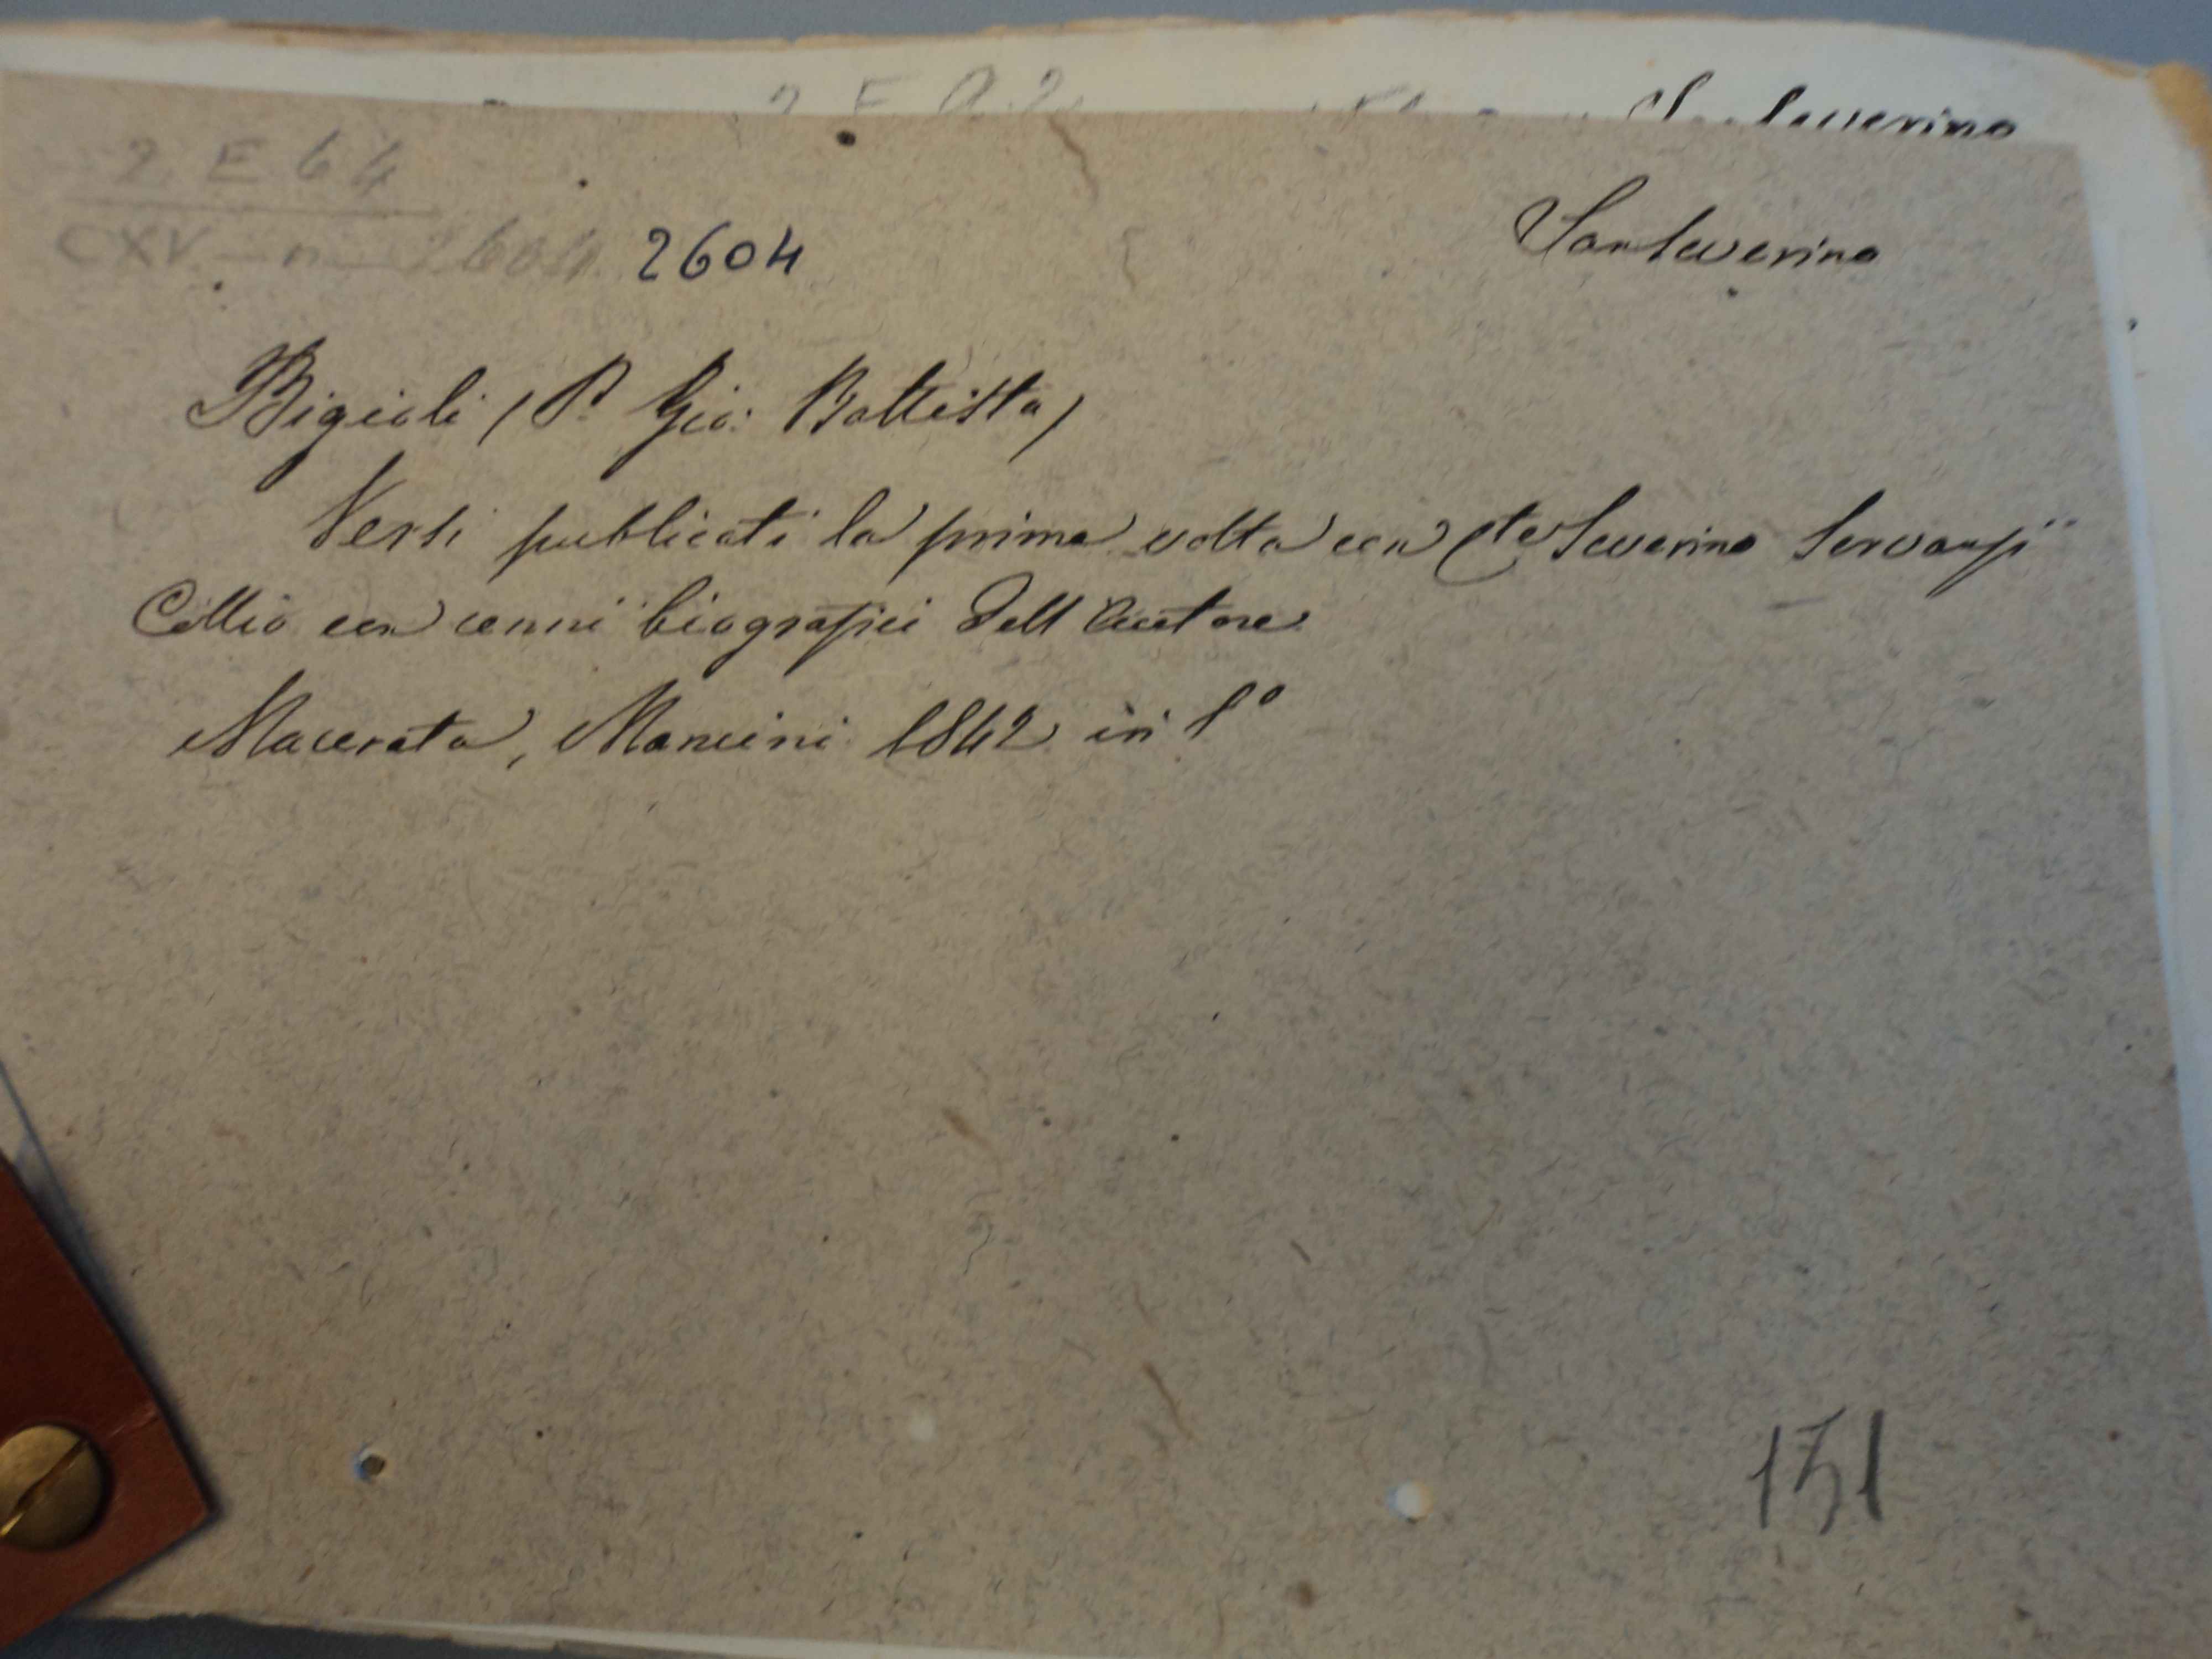 Sanseverino
2 E 64
CXV n 2604 2604
Sanseverino
Bigioli (P. Gio: Battista)
Versi publicati la prima volta con Cte Severino Servanzi
Collio con cenni biografici dell Autore
Macerata, Mancini 1842 in 8°
131